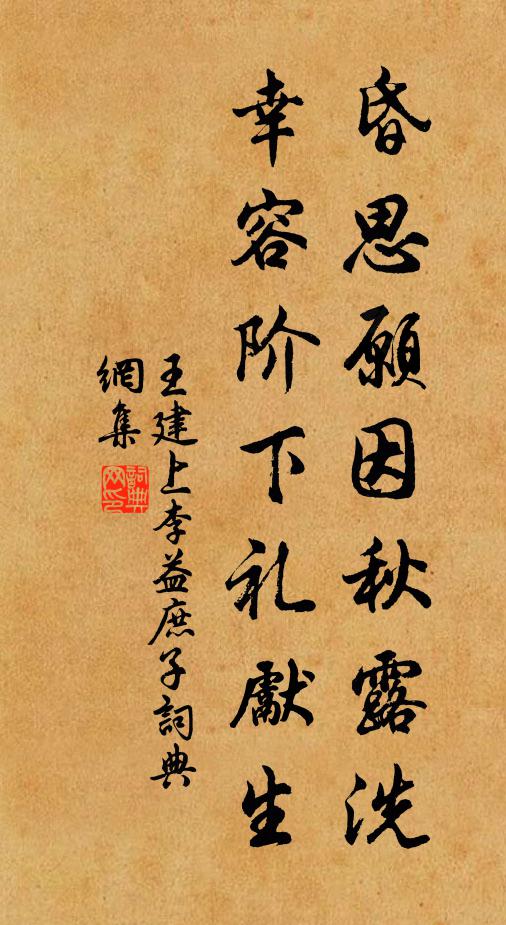 昏思願因秋露洗
幸容阶下礼獻生
王建上李益庶子詞典
網集
詞典
网印